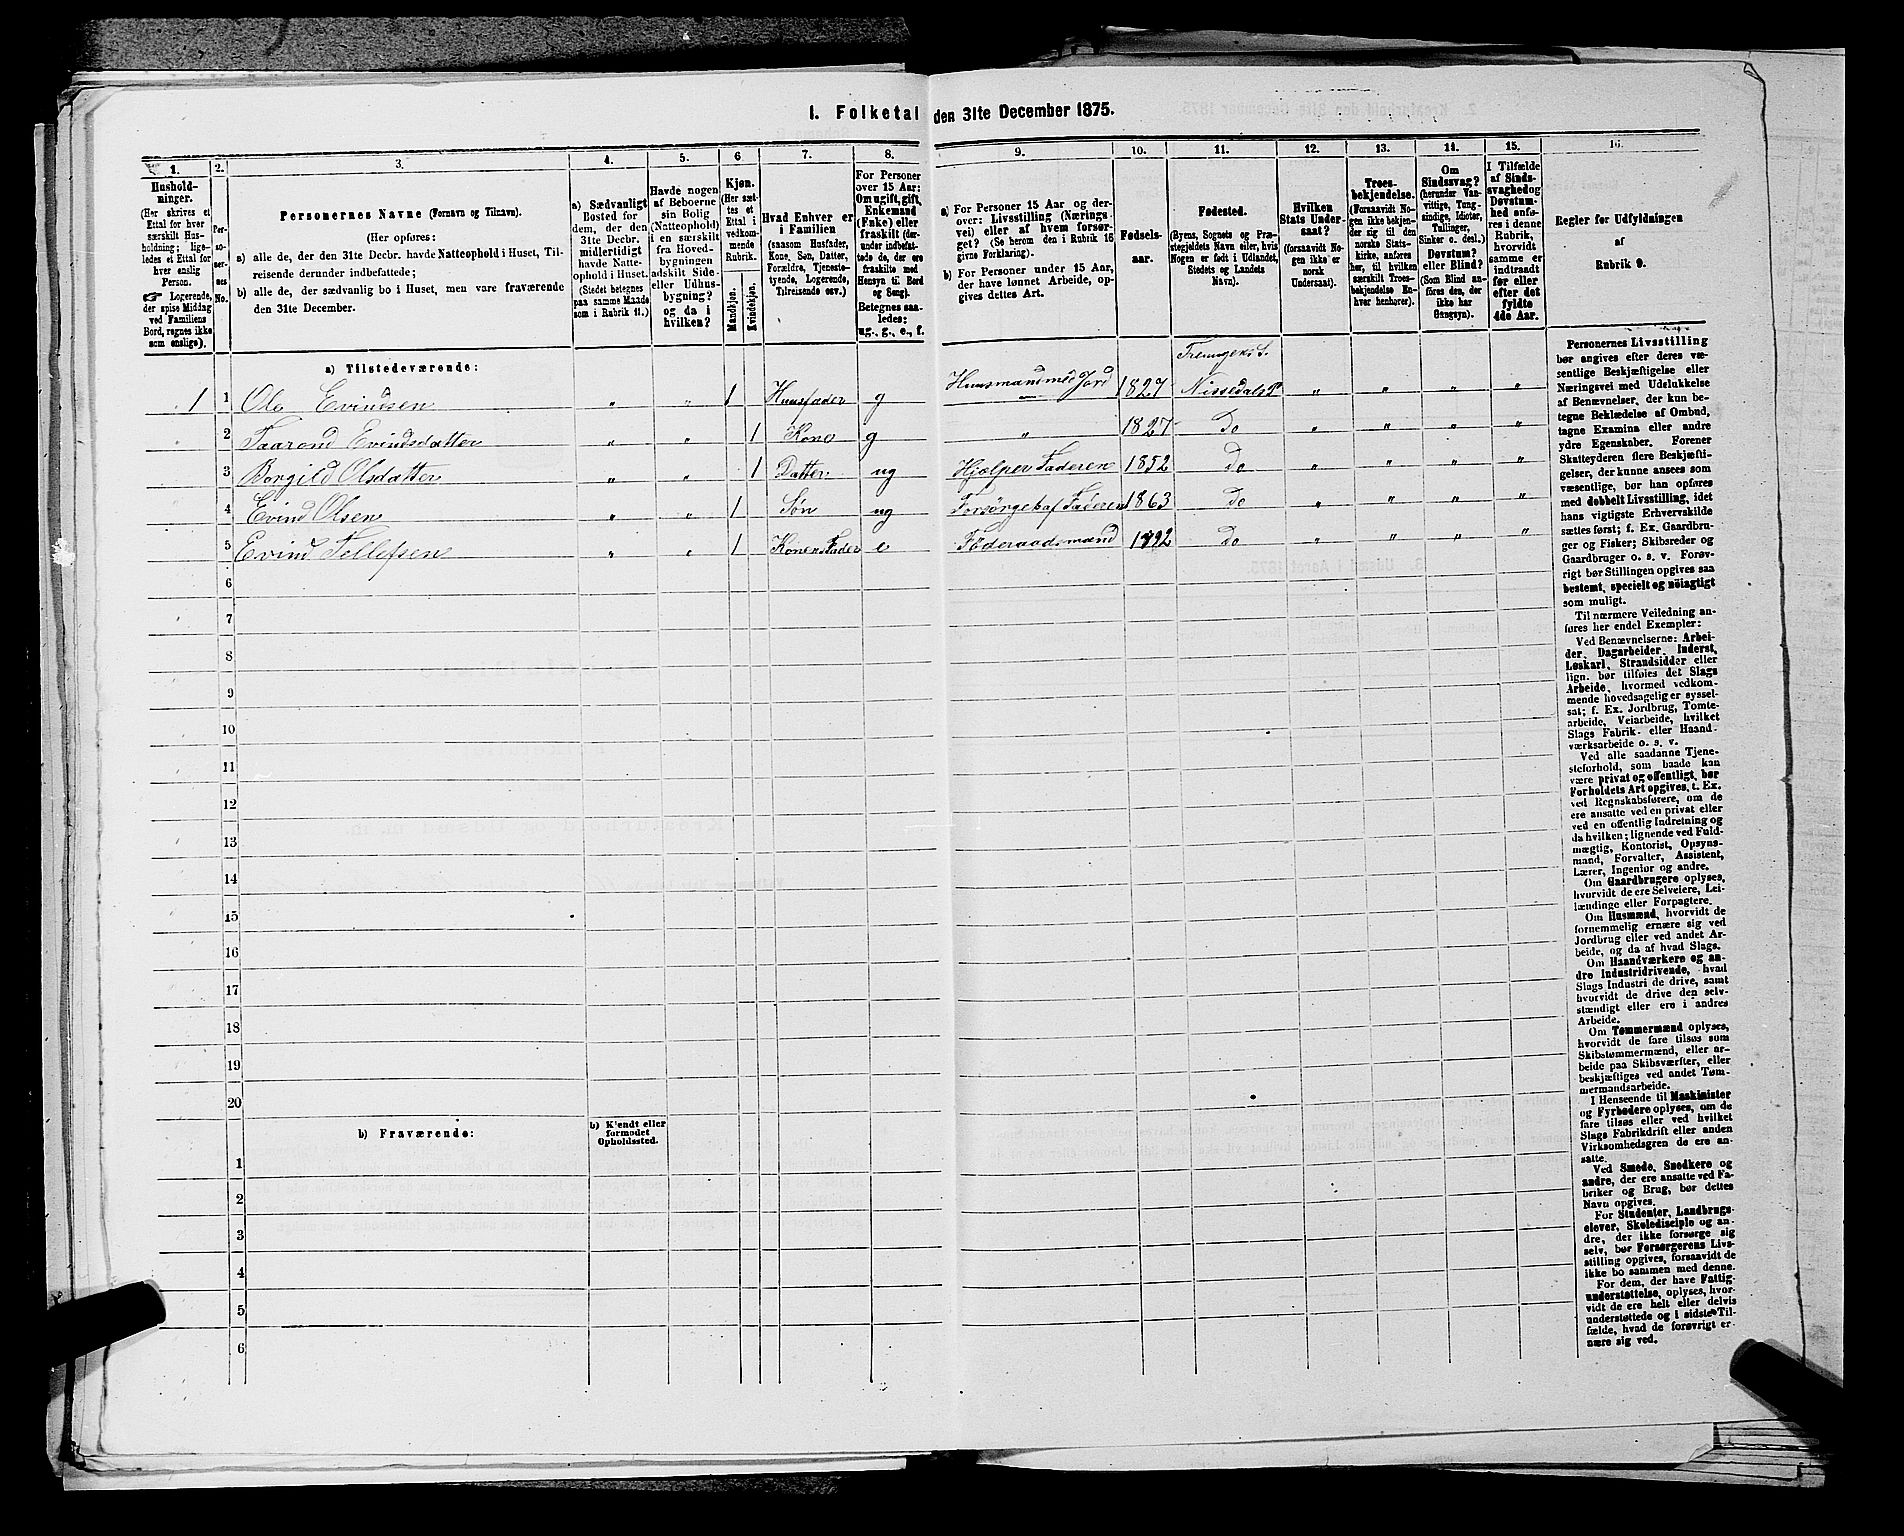 I. Folketal den 31te December 1875.
1. 2. 3. 4. 5. 6 7. 8. 9. 10. 11. 12. 13. 14. 15. 16.
Hushold-
ninger.
(Her skrives et
Ettal for hver
særskilt Hus-
holdning; lige-
ledes et Ettal for
hver enslig
Person.
☞ Logerende,
der spise Middag
ved Familiens
Bord, regnes ikke
som enslige).
Per-
so-
ner-
nes
No.
Personernes Navne (Fornavn og Tilnavn).
(Her opføres:
a) alle de, der den 31te Decbr. havde Natteophold i Huset, Til-
reisende derunder indbefattede;
b) alle de, der sædvanlig bo i Huset, men vare fraværende
den 31te December.
a) Sædvanligt
Bosted for
dem, der den
31te Decbr.
midlertidigt
havde Natte-
ophold i Huset.
(Stedet betegnes
paa samme Maade
som i Rubrik 11.)
Havde nogen
af Beboerne
sin Bolig
(Natteophold)
i en særskilt
fra Hoved-
bygningen
adskilt Side-
eller Udhus-
bygning?
og da i
hvilken?
Kjøn.
(Her sæt-
tes et
Ettal i
vedkom-
mende
Rubrik.
Mandkjøn.
Kvindekjøn.
Hvad Enhver er
i Familien
(saasom Husfader,
Kone, Søn, Datter,
Forældre, Tjeneste-
tyende, Logerende,
Tilreisende osv.)
For Personer
over 15 Aar:
Om ugift, gift,
Enkemand
(Enke) eller
fraskilt (der-
under indbefat-
tede de, der ere
fraskilte med
Hensyn til Bord
og Seng).
Betegnes saa-
ledes:
ug., g., e., f.
a) For Personer 15 Aar og der-
over: Livsstilling (Nærings-
vei) eller af hvem forsør-
get? (Se herom den i Rubrik 16
givne Forklaring).
b) For Personer under 15 Aar,
der have lønnet Arbeide, op-
gives dettes Art.
Fødsels-
aar.
Fødested.
(Byens, Sognets og Præ-
stegjeldets Navn eller, hvis
Nogen er født i Udlandet,
Stedets og Landets
Navn).
Hvilken
Stats Under-
saat?
(forsaavidt No-
gen ikke er
norsk
Undersaat).
Troes-
bekjendelse.
(Forsaavidt No-
gen ikke bekjen-
der sig til den
norske Stats-
kirke, anføres
her, til hvilken
særskilt Troes-
bekjendelse En-
hver henhører).
Om
Sindssvag?
(herunder Van-
vittige, Tung-
sindige, Idioter,
Tullinger,
Sinker o. desl.)
Døvstum?
eller Blind?
(Som Blind an-
føres den, der
ikke har
Gangsyn).
I Tilfælde
af Sinds-
svaghed og
Døvstum-
hed anfø-
res i denne
Rubrik,
hvorvidt
samme er
indtraadt
før eller
efter det
fyldte
4de Aar.
Regler for Udfyldningen
af
Rubrik 9.
a) Tilstedeværende:
1 1 Ole Evindsen „ „ 1 Huusfader g Huusmand med Jord 1827 Nissedals P „ „ „ „
2 Taarand Evindsdatter „ „ 1 Kone g „ 1827 Do „ „ „ „
3 Borgild Olsdatter „ „ 1 Datter ug Hjælper Faderen 1852 Do „ „ „ „
4 Evind Olsen „ „ 1 Søn ug Forsørget af Faderen 1863 Do „ „ „ „
5 Evind Tellefsen „ „ 1 Konens Fader e Föderaadsmand 1792 Do „ „ „ „
6
7
8
9
10
11
12
13
14
15
16
17
18
19
20
b) Fraværende:
b) Kjendt eller
formodet
Opholdssted.
1
2
3
4
5
6
Personernes Livsstilling
bør angives efter deres væ-
sentlige Beskjæftigelse eller
Næringsvei med Udelukkelse
af Benævnelser, der kun be-
tegne Beklædelse af Ombud,
tagne Examina eller andre
ydre Egenskaber. Forener
Skatteyderen flere Beskjæfti-
gelser, der kunne ansees som
væsentlige, bør han opføres
med dobbelt Livsstilling, idet
hans vigtigste Erhvervskilde
sættes først; f. Ex. Gaardbru-
ger og Fisker; Skibsreder og
Gaardbruger o. s. v. Forøv-
rigt bør Stillingen opgives saa
bestemt, specielt og nöiagtigt
som muligt.
Til nærmere Veiledning an-
føres her endel Exempler:
Ved Benævnelserne: Arbei-
der, Dagarbeider, Inderst,
Løskarl, Strandsidder eller
lign. bør tilføies det Slags
Arbeide, hvormed vedkom-
mende hovedsagelig er syssel-
sat; f. Ex. Jordbrug, Tomte-
arbeide, Veiarbeide, hvilket
Slags Fabrik- eller Haand-
værksarbeide o. s. v.
Ved alle saadanne Tjene-
steforhold, som baade kan
være privat og offentligt, bør
Forholdets Art opgives, t. Ex.
ved Regnskabsførere, om de
ere ansatte ved en privat eller
ved en offentlig Indretning og
da hvilken; lignende ved Fuld-
mægtig, Kontorist, Opsyns-
mand, Forvalter, Assistent,
Lærer, Ingeniør og andre.
Om Gaardbrugere oplyses,
hvorvidt de ere Selveiere, Lei-
lændinge eller Forpagtere.
Om Husmænd, hvorvidt de
fornemmelig ernære sig ved
Jordbrug eller ved andet Ar-
beide, og da af hvad Slags.
Om Haandværkere og an-
dre Industridrivende, hvad
Slags Industri de drive, samt
hvorvidt de drive den selv-
stændigt eller ere i andres
Arbeide.
Om Tømmermænd oplyses,
hvorvidt de fare tilsøs som
Skibstømmermænd, eller ar-
beide paa Skibsværfter, eller
beskjæftiges ved andet Tøm-
mermandsarbeide.
I Henseende til Maskinister
og Fyrbødere oplyses, om de
fare tilsøs eller ved hvilket
Slags Fabrikdrift eller anden
Virksomhedsgren de ere an-
satte.
Ved Smede, Snedkere og
andre, der ere ansatte ved Fa-
briker og Brug, bør dettes
Navn opgives.
For Studenter, Landbrugs-
elever, Skoledisciple og an-
dre, der ikke forsørge sig
selv, bør Forsørgerens Livs-
stilling opgives, forsaavidt de
ikke bo sammen med denne.
For dem, der have Fattig-
understøttelse, oplyses, hvor-
vidt de ere helt eller delvis
understøttede og i sidste Til-
fælde, hvad de forøvrigt er-
nære sig ved.